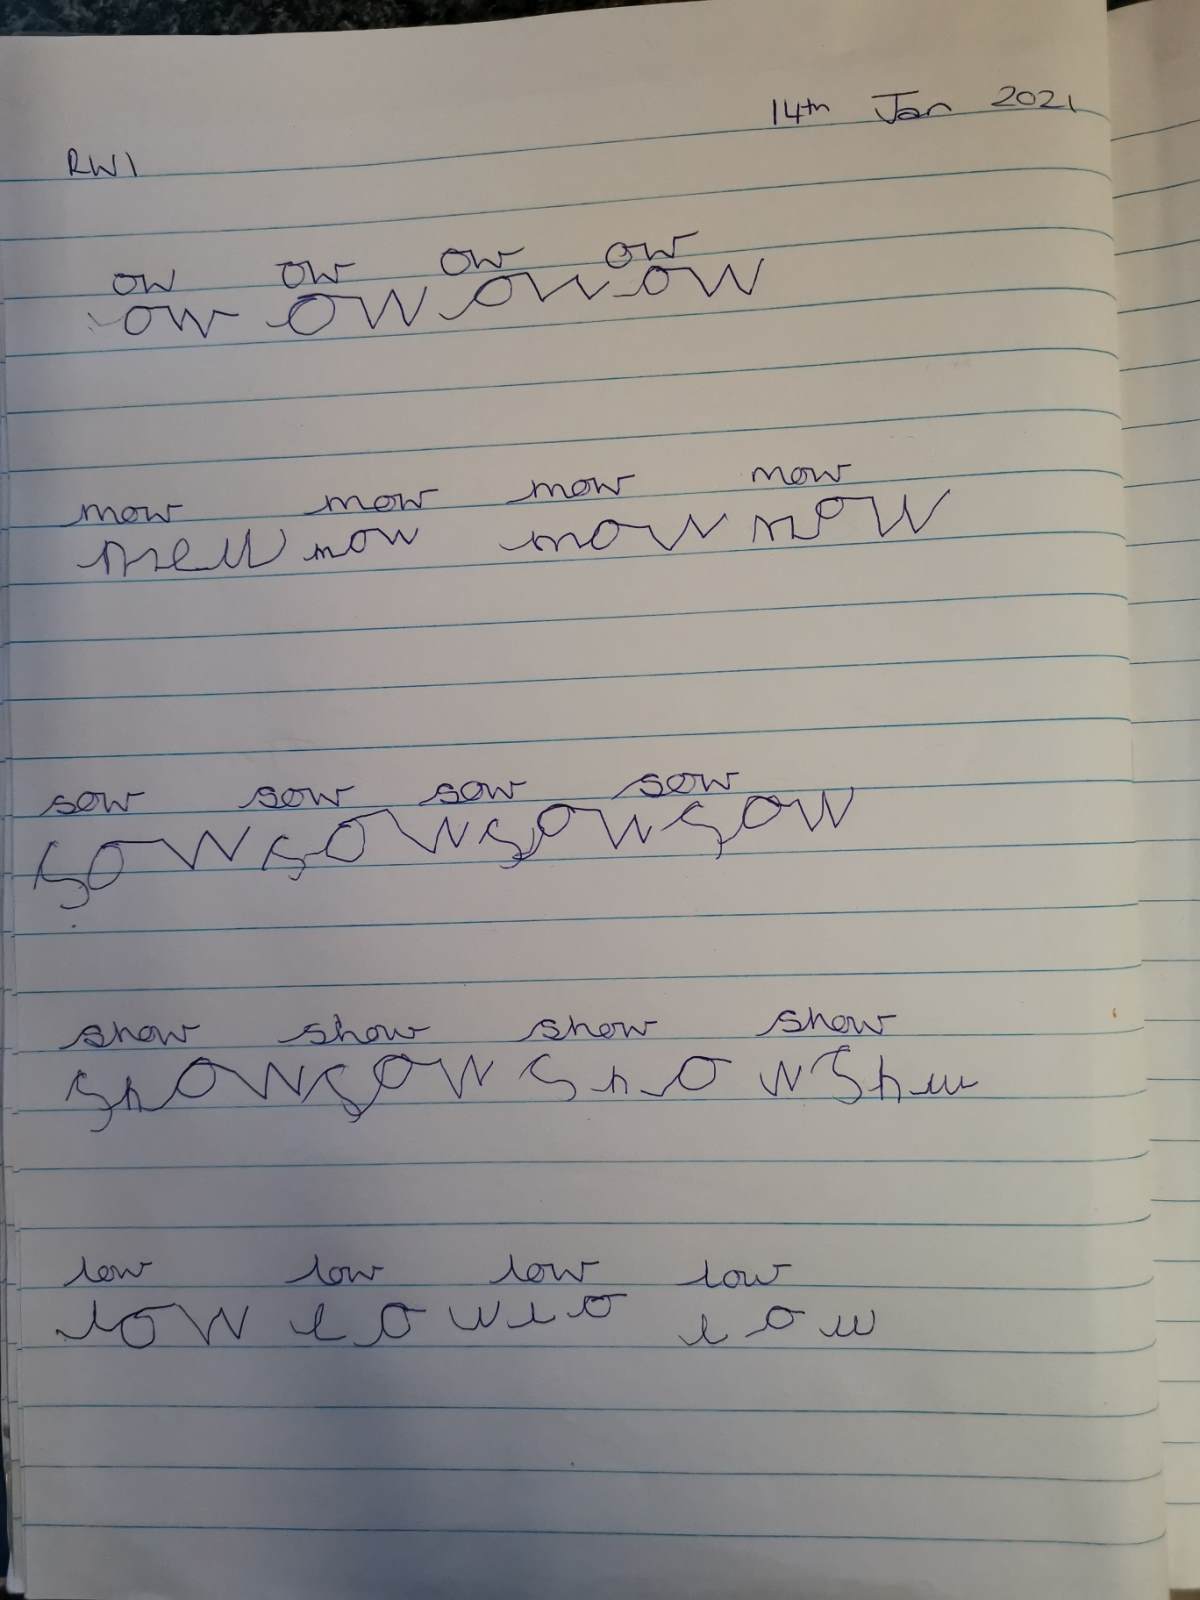 14th Jan 2021
RWI
ow ow ow ow
ow ow ow ow
mow mow mow mow
mow mow mow
sow sow sow sow
sow sow sow sow
show show show show
show sow show
low low low low
low low lo low